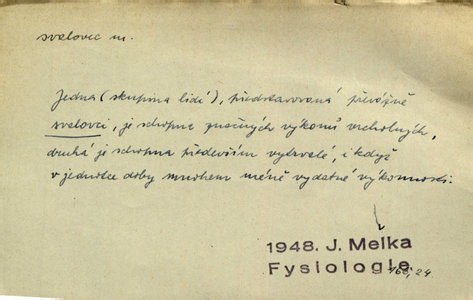 svalovec m.
Jedna (skupina lidí), představovaná převážně
svalovci, je schopna značných výkonů vrcholných,
druhá je schopna především vytrvalé, i když
v jednotce doby mnohem méně vydatné výkonnosti.
1948. J. Melka
Fysiologie 168, 24